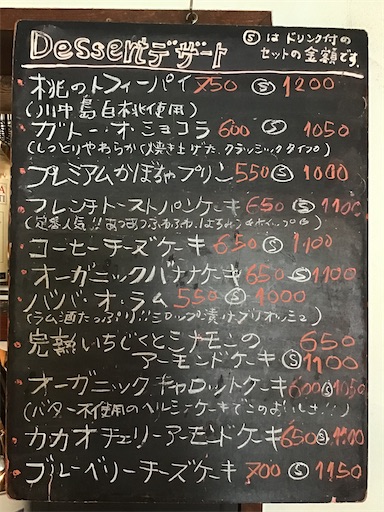 Dessert デザート
Ⓢは ドリンク付の
セットの金額です。
桃のトフィーパイ 750 Ⓢ 1200
(川中島白桃使用)
ガトー・オ・ショコラ 600 Ⓢ 1050
(しっとりやわらかく焼き上げた、クラッシックタイプ)
プレミアムかぼちゃプリン 550 Ⓢ 1000
フレンチトーストパンケーキ 650 Ⓢ 1100
(定番人気!!あつあつふわふわ、はちみつ
コーヒーチーズケーキ 650 Ⓢ 1100
オーガニックバナナケーキ 650 Ⓢ 1100
ババ・オ・ラム 550 Ⓢ 1000
(ラム酒たっぷり!!シロップ漬けブリオッシュ)
完熟いちじくとシナモンの 650
アーモンドケーキ Ⓢ 1100
オーガニックキャロットケーキ 600 Ⓢ 1050
(バター不使用のヘルシーケーキでこのおいしさ!!)
カカオチェリーアーモンドケーキ 650 Ⓢ 1100
ブルーベリーチーズケーキ 700 Ⓢ 1150